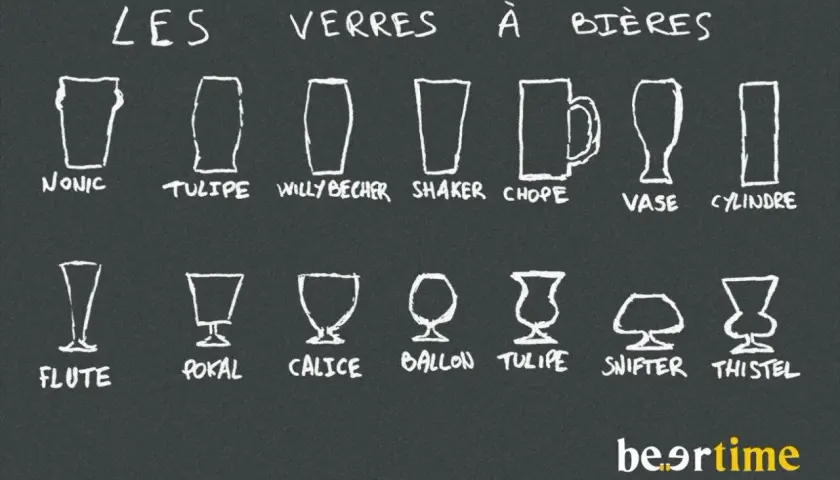 LES VERRES À BIÈRES
NONIC TULIPE WILLYBECHER SHAKER CHOPE VASE CYLINDRE
FLUTE POKAL CALICE BALLON TULIPE SNIFTER THISTEL
beertime